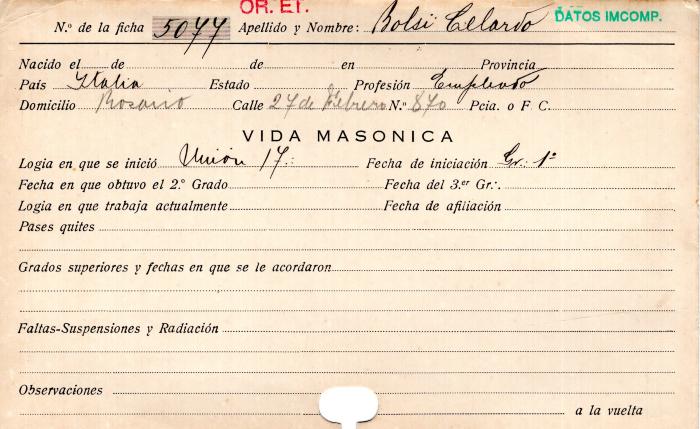 OR. ET.
N.º de la ficha 5077 Apellido y Nombre: Bolsi Celardo DATOS IMCOMP.
Nacido el de de en Provincia
País Italia Estado Profesión Empleado
Domicilio Rosario Calle 27 de Febrero N.º 870 Pcia. o F C.
VIDA MASONICA
Logia en que se inició Unión 17.: Fecha de iniciación Gr.: 1º
Fecha en que obtuvo el 2.º Grado Fecha del 3.er Gr.·.
Logia en que trabaja actualmente Fecha de afiliación
Pases quites
Grados superiores y fechas en que se le acordaron
Faltas-Suspensiones y Radiación
Observaciones
a la vuelta